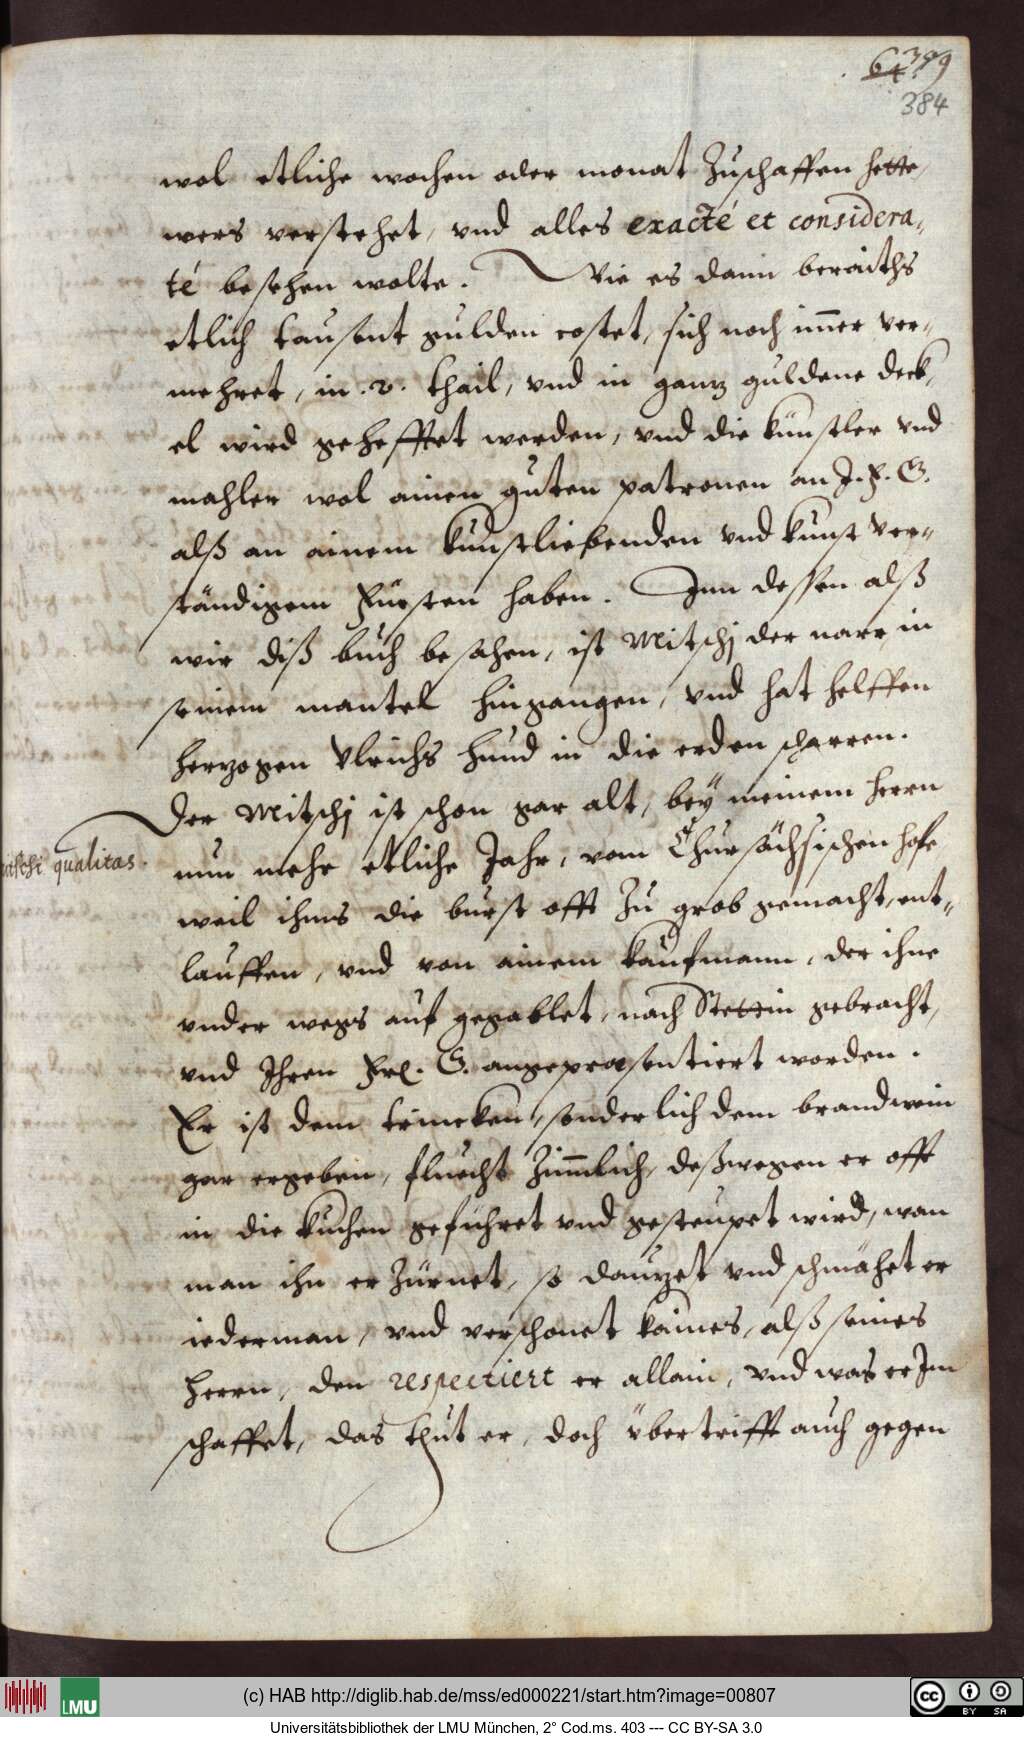 384
wol etliche wochen oder monat Zuschaffen hette,
wers verstehet, vnd alles exacté et considera,,
té besehen wolte. Wie es dann beraiths
etlich tausent gulden costet, sich noch imer ver,,
mehret, in .2. thail, vnd in ganz guldene deck,,
el wird gehefftet werden, vnd die künstler vnd
mahler wol ainen guten patronen an I. F. G.
alß an ainem kunstliebenden vnd kunst ver,,
ständigem Fürsten haben. Inn dessen alß
wir diß buch besahen, ist Mitschj der narr, in
seinem mantel hingangen, vnd hat helffen
herzogen Vlrichs hund in die erden scharren.
Der Mitschj ist schon gar alt, beÿ meinem herrn
nun mehr etliche Jahr, vom Chursächsischen hofe
qualitas.
weil ihms die burst offt Zu grob gemacht, ent,,
lauffen, vnd von ainem kaufmann, der ihne
vnder wegs auf gegablet, nach Stettin gebracht,
vnd Ihren Frl. G. angepraesentiert worden.
Er ist dem trincken, sonderlich dem brandwein
gar ergeben, fluecht Zimmlich, deßwegen er offt
in die kuchen geführet vnd gesteupet wird, wan
man ihn er Zürnet, so dauzet vnd schmähet er
iederman, vnd verschonet kaines, alß seines
herrn, den respectiert er allain, vnd was er Im
schaffet, das thut er, doch übertrifft auch gegen
LMU
(c) HAB http://diglib.hab.de/mss/ed000221/start.htm?image=00807
cc BY SA
Universitätsbibliothek der LMU München, 2° Cod.ms. 403 --- CC BY-SA 3.0